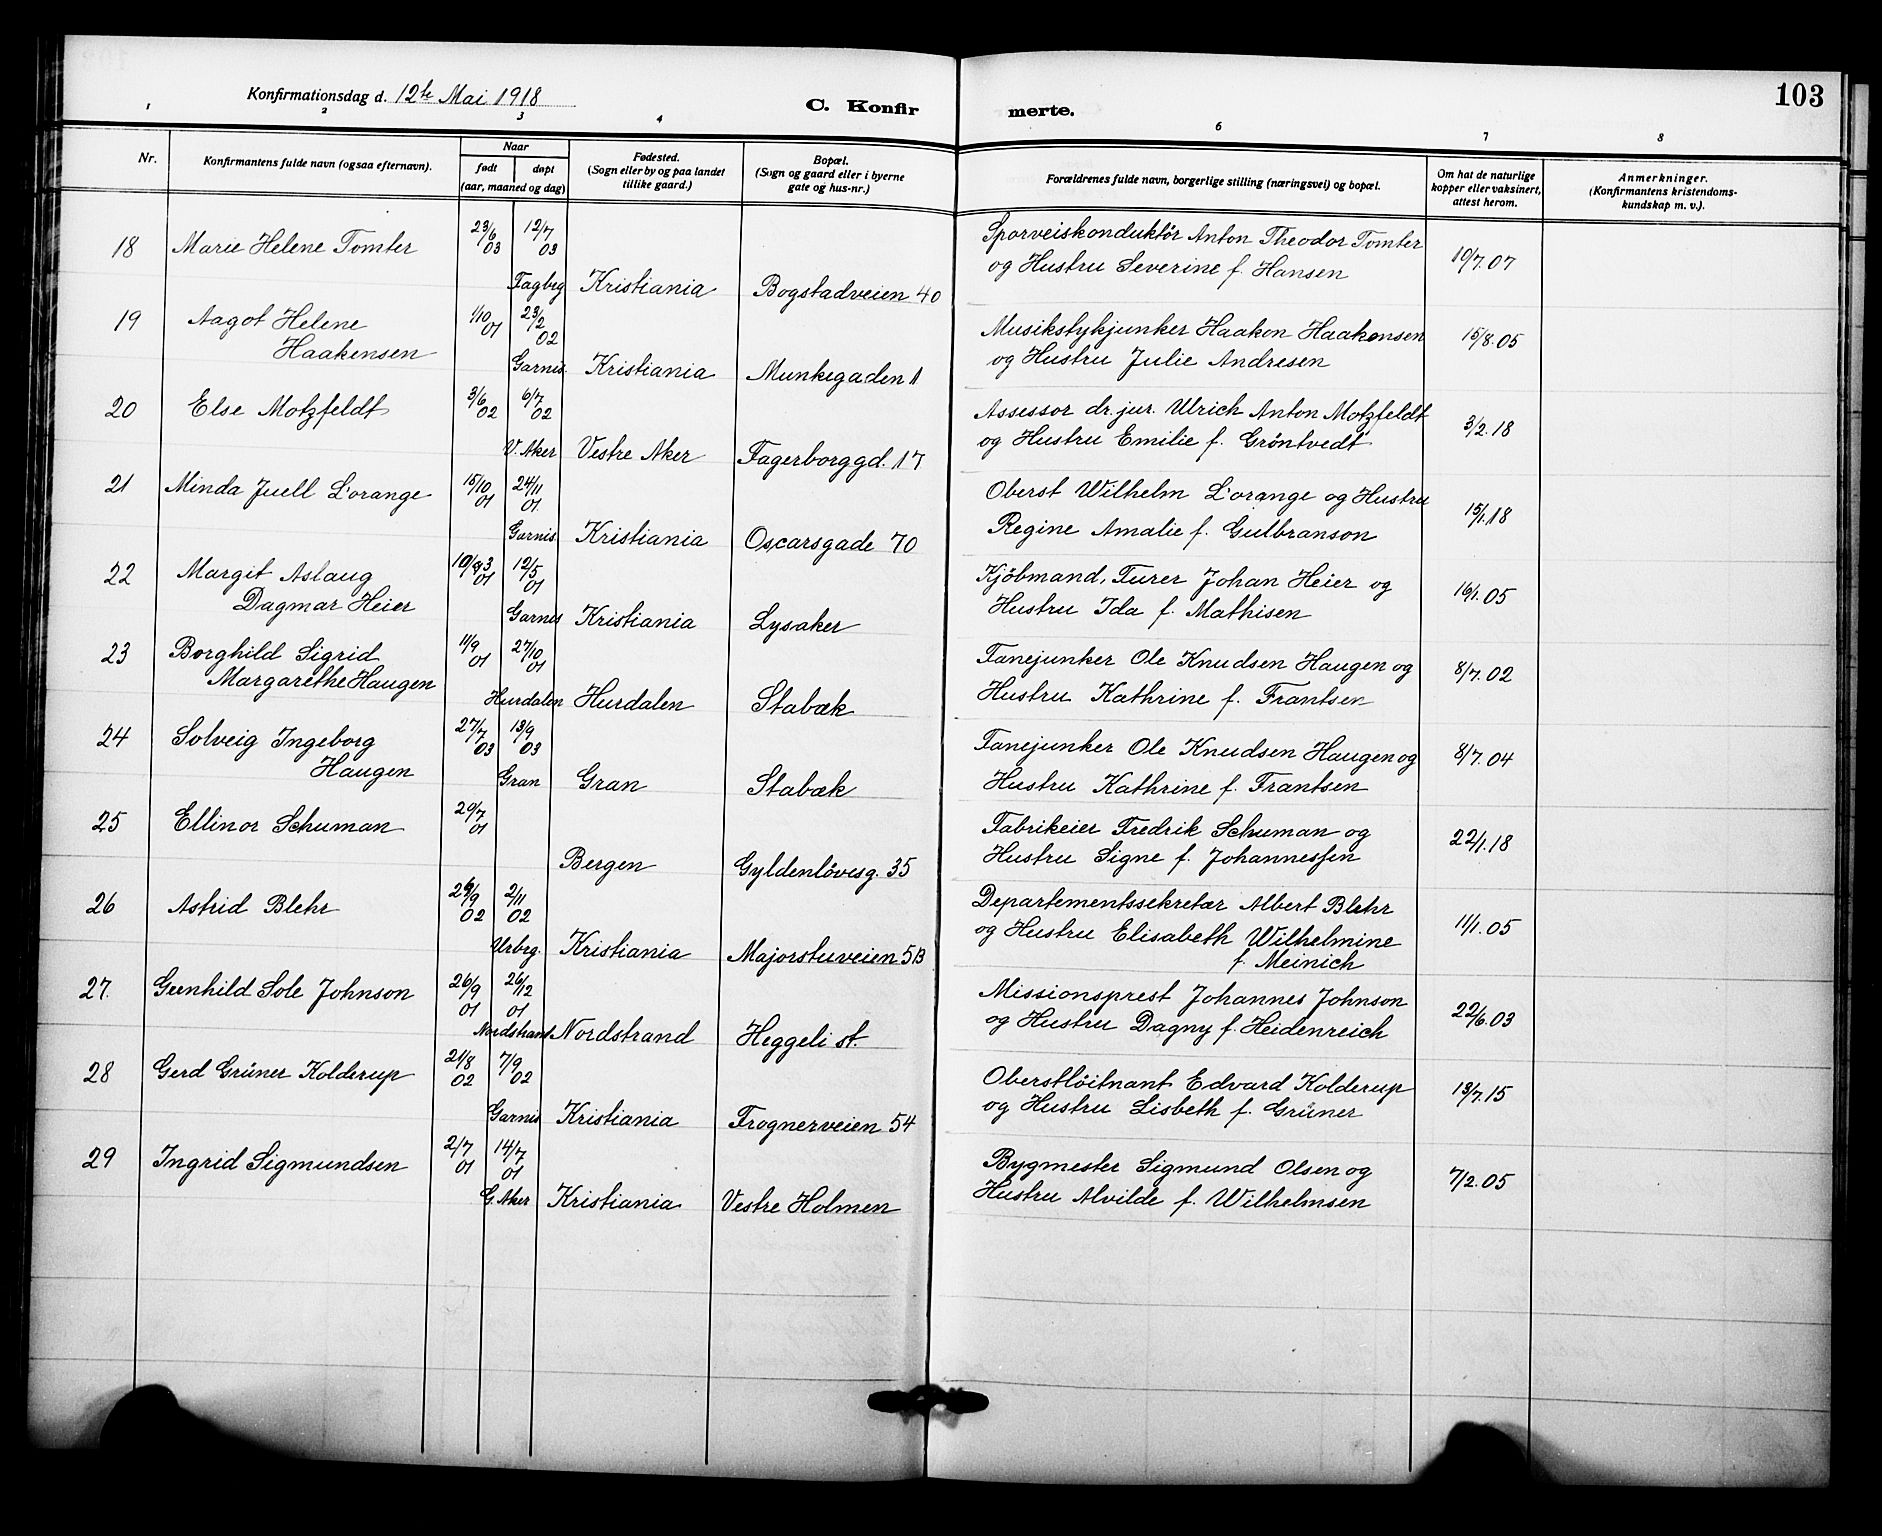 103
Konfirmationsdag d. 12te Mai 1918
C. Konfirmerte.
1 2 3 4 6 7 8
Nr. Konfirmantens fulde navn (ogsaa efternavn). Naar født døpt (aar, maaned og dag) Fødested. (Sogn eller by og paa landet tillike gaard.) Bopæl. (Sogn og gaard eller i byerne gate og hus-nr.) Forældrenes fulde navn, borgerlige stilling (næringsvei) og bopæl. Om hat de naturlige kopper eller vaksinert, attest herom. Anmerkninger. (Konfirmantens kristendoms-kundskap m. v.).
18 Marie Helene Tomter 23/6 03 12/7 03 Sporveiskonduktör Anton Theodor Tomter 10/7.07
Fagbg Kristiania Bogstadveien 40 og Hustru Severine f. Hansen
19 Aagot Helene 1/10 01 23/2 02 Musikstykjunker Haakon Haakonsen 15/8.05
Haakensen Garnis. Kristiania Munkegaden 1 og Hustru Julie Andresen
20 Else Motzfeldt 3/6 02 6/7 02 Assessor dr. jur. Ulrich Anton Motzfeldt 3/2.18
V. Aker Vestre Aker Fagerborggd. 17 og Hustru Emilie f. Gröntvedt
21 Minda Juell L'orange 15/10 01 24/11 01. Oberst Wilhelm L'orange og Hustru 15/1.18
Garnis Kristiania Oscarsgade 70 Regine Amalie f. Gulbranson
22 Margit Aslaug 01 12/5 01 Kjöbmand, Turer Johan Heier og 16/1.05
Dagmar Heier Garnis Kristiania Lysaker Hustru Ida f. Mathisen
23 Borghild Sigrid 11/9 01 27/10 01 Fanejunker Ole Knudsen Haugen og 8/7.02
Margarethe Haugen Hurdalen Hurdalen Stabæk Hustru Kathrine f. Frantsen
24 Solveig Ingeborg 27/7 03 13/9 03 Fanejunker Ole Knudsen Haugen og 8/7.04
Haugen Gran Gran Stabæk Hustru Kathrine f. Frantsen
25 Ellinor Schuman 29/7 01 Fabrikeier Fredrik Schuman og 22/1.18
Bergen Gyldenlövesg. 35 Hustru Signe f. Johannessen
26 Astrid Blehr 02 2/11 02 Departementssekretær Albert Blehr 11/1.05
Urbrg. Kristiania Majorstuveien 5B og Hustru Elisabeth Wilhelmine
f. Meinich
27. Gunhild Sole Johnson 26/9 01 26/12 01 Missionsprest Johannes Johnson 22/6.03
Nordstrand Nordstrand Heggeli st. og Hustru Dagny f. Heidenreich
28 Gerd Grüner Kolderup 21/8 02 7/9 02 Oberstlöitnant Edvard Kolderup 13/7.15
Garnis Kristiania Frognerveien 54 og Hustru Lisbeth f. Grüner
29 Ingrid Sigmundsen 2/7 01 14/7 01 Bygmester Sigmund Olsen og 7/2.05
G. Aker Kristiania Vestre Holmen Hustru Alvilde f. Wilhelmsen